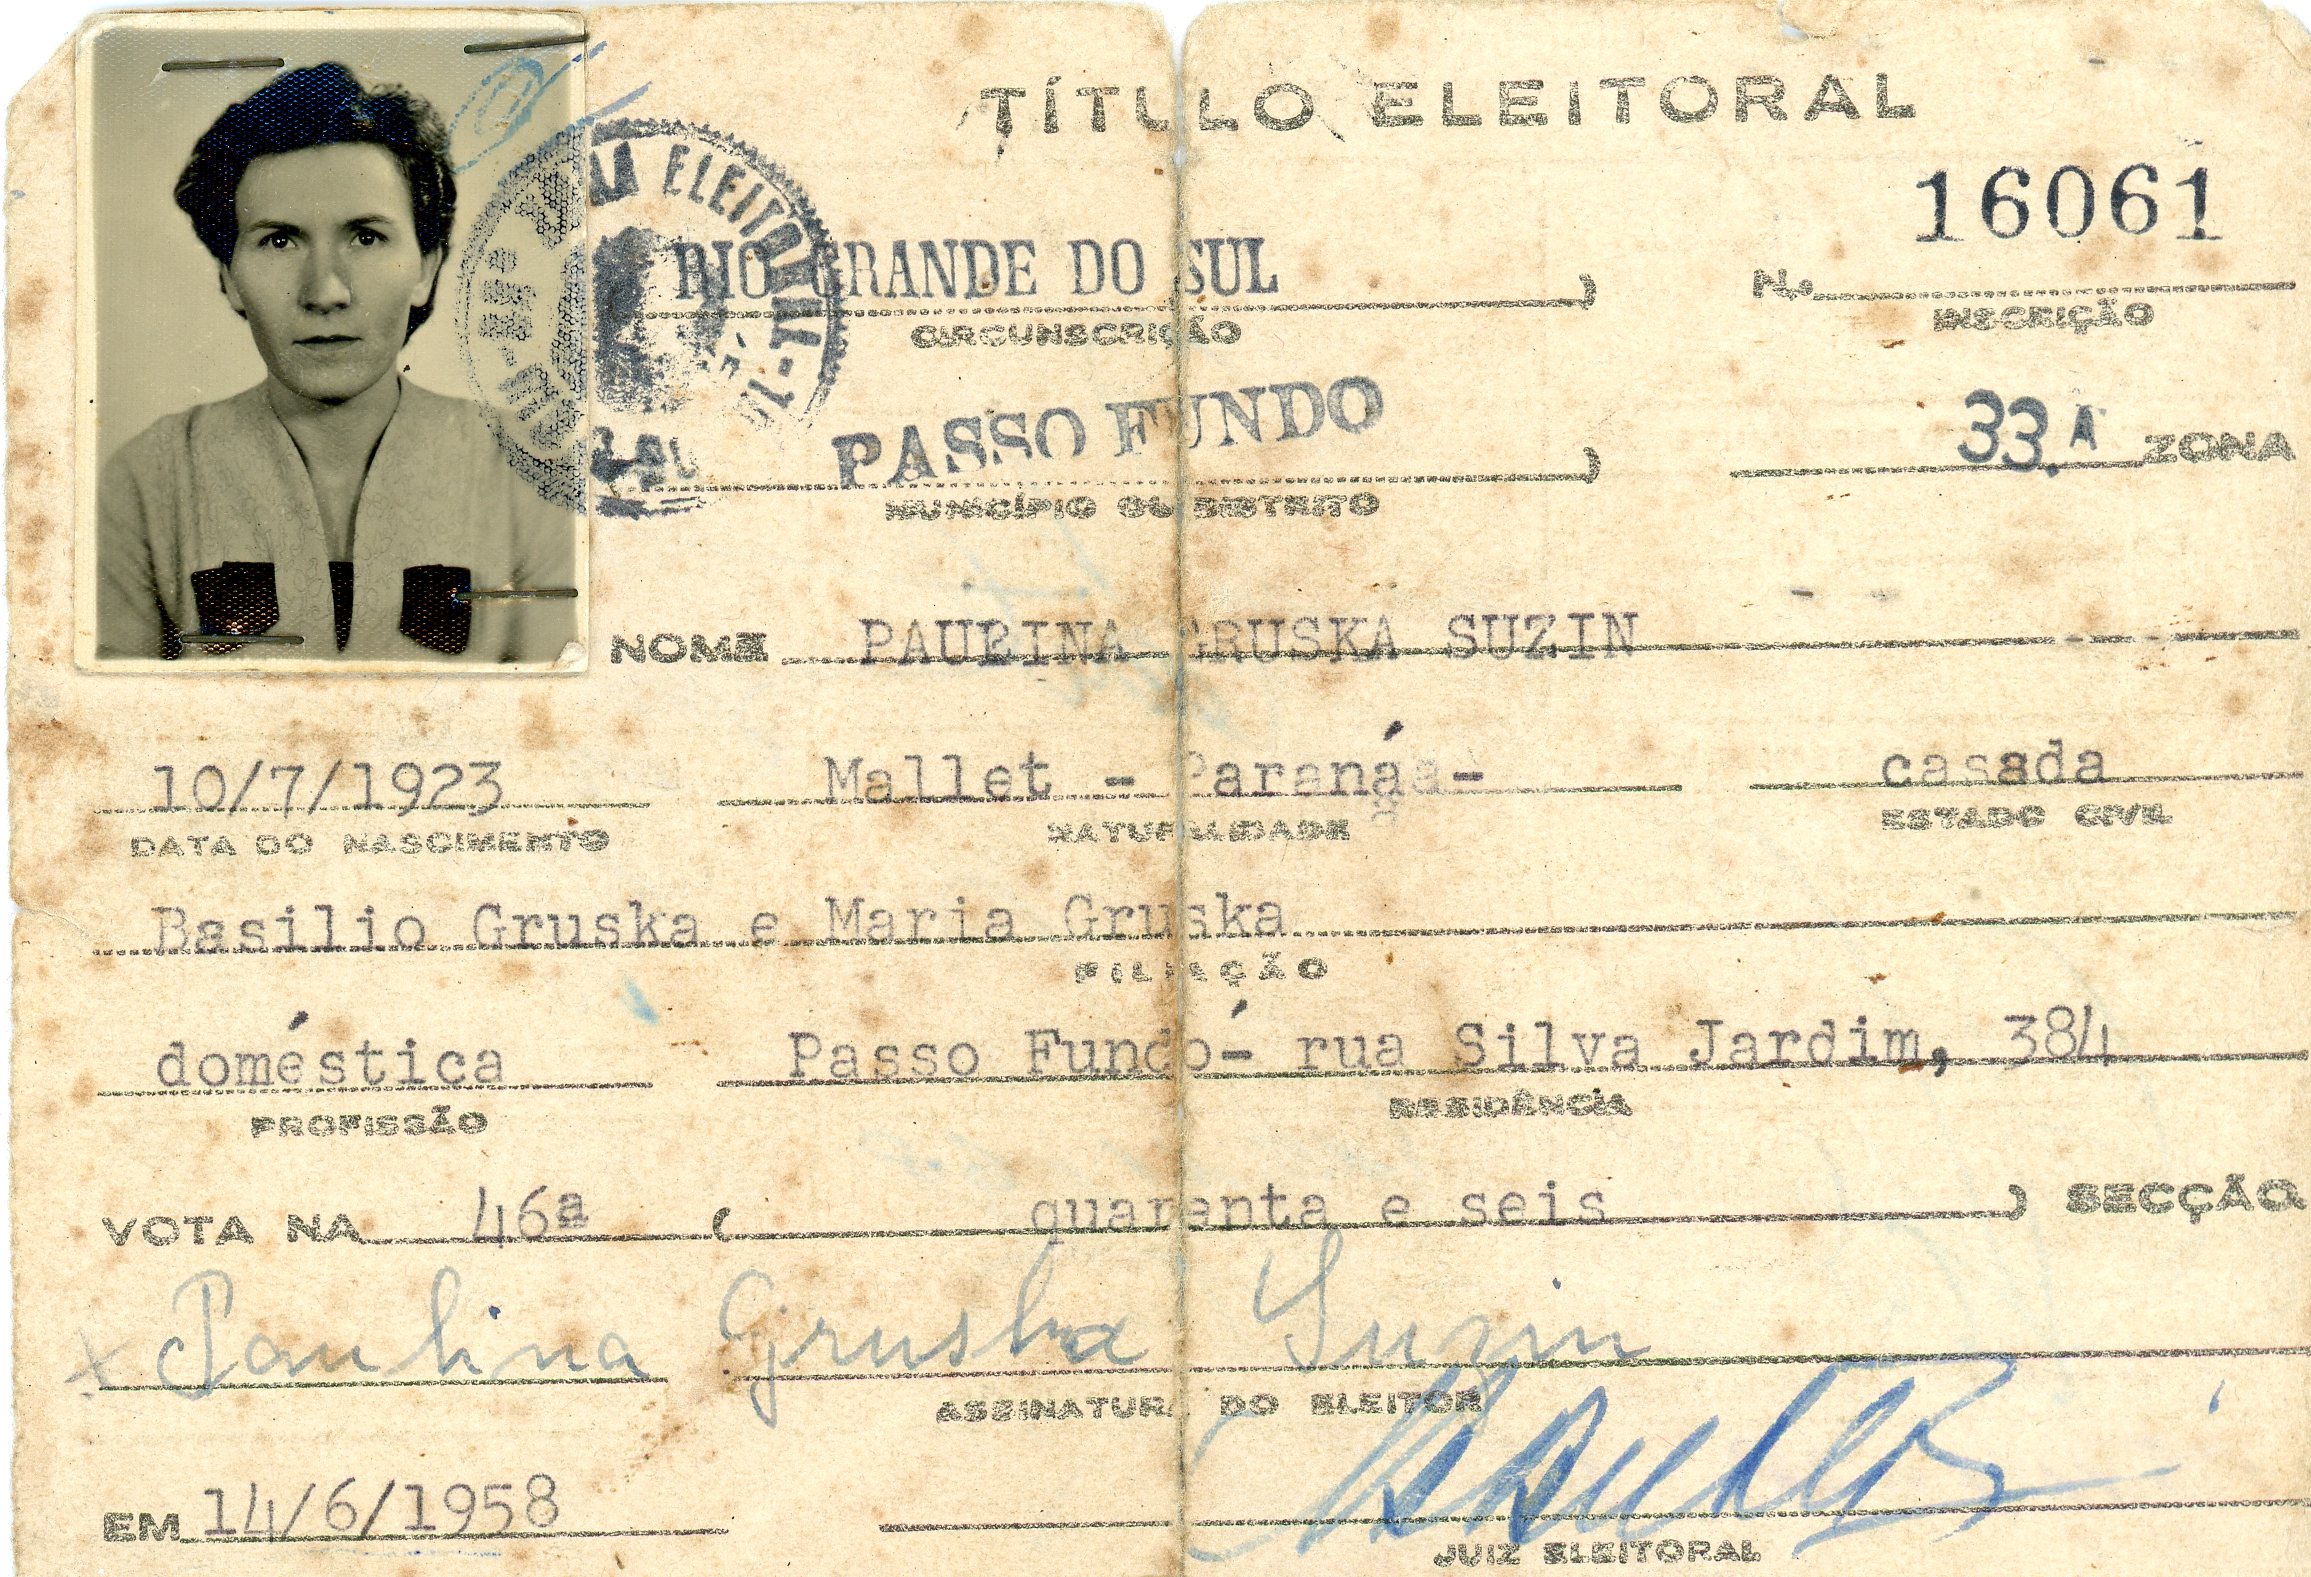 TÍTULO ELEITORAL
16061
RIO GRANDE DO SUL
Nº
CIRCUNSCRIÇÃO
INSCRIÇÃO
PASSO FUNDO
33.A ZONA
MUNICÍPIO OU DISTRITO
NOME PAULINA GRUSKA SUZIN
10/7/1923 Mallet - Paraná- casada
DATA DO NASCIMENTO NATURALIDADE ESTADO CIVIL
Basilio Gruska e Maria Gruska
FILIAÇÃO
doméstica Passo Fundó- rua Silva Jardim, 384
PROFISSÃO RESIDÊNCIA
VOTA NA 46ª ( quarenta e seis ) SECÇÃO
x Paulina Gruska Suzin
ASSINATURA DO ELEITOR
EM 14/6/1958
JUIZ ELEITORAL